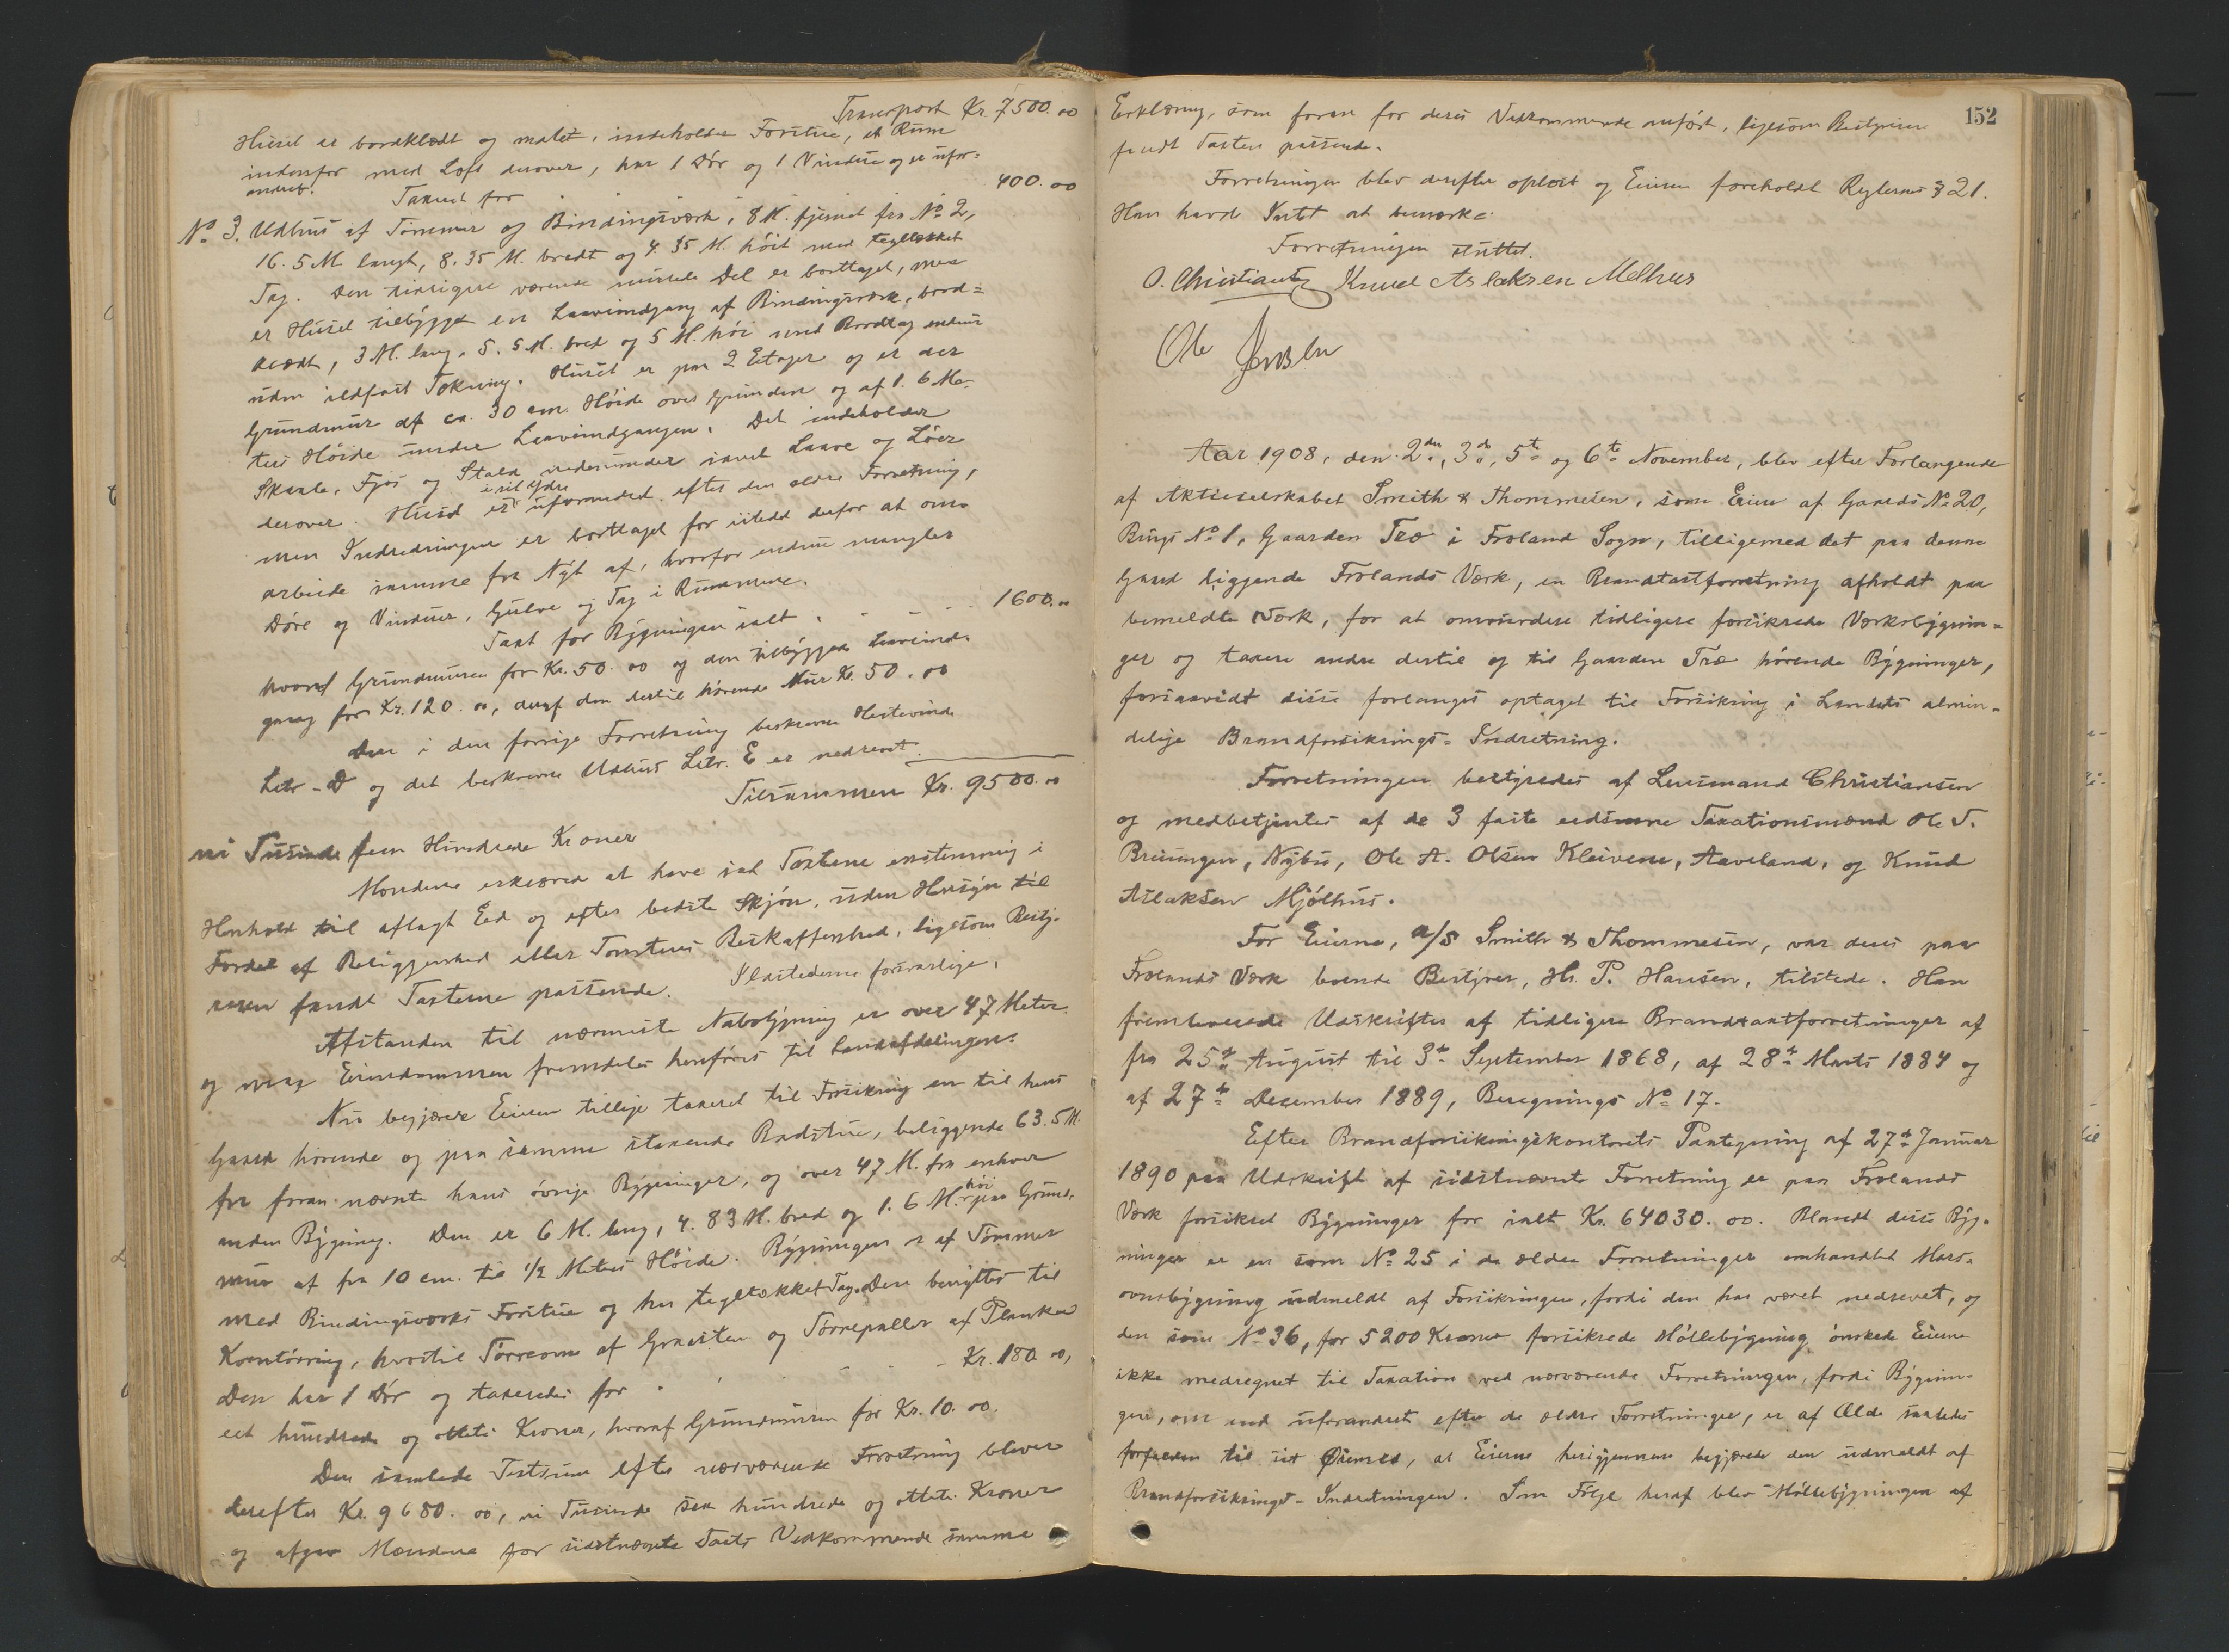 Transport Kr. 7500.00
Huset er bordklædt og malet, indeholder Forstue, et Rum
indenfor med Loft derover, har 1 Dør og 1 Vindue og er ufor-
andret. Taxeret for 400.00
No 3. Udhus af Tømmer og Bindingsværk, 8 M. fjernet fra No 2,
16.5 M. langt, 8.35 M. bredt og 4.35 M. høit med tegltækket
Tag. Den tidligere værende Del er borttaget, men
er Huset tilbygget en Laaveindgang af Bindingsværk, bord-
klædt, 3 M. lang, 5.5 M. bred og 5 M. høi med Bordtag endnu
uden ildfast Tækning. Huset er paa 2 Etager og er der
Grundmur af ca. 30 cm. Høide over Grunden og af 1.6 Me-
ters Høide under Laaveindgangen. Det indeholder
Skaale, Fjøs og Stald nedenunder samt Laave og Löer
derover. Huset er i sit Ydre uforandret efter den ældre Forretning,
men Indredningen er borttaget for istedet derfor at om-
arbeide samme fra Nyt af, hvorfor endnu mangler
Døre og Vinduer, Gulve og Tag i Rummene.
Taxt for Bygningen ialt 1600.00
hvoraf Grundmuren for Kr. 50.00 og den tilbyggede Laaveind-
gang for Kr. 120.00, deraf den dertil hørende Mur Kr. 50.00
Den i den forrige Forretning beskrevne Hestevind
Litr. D og det beskrevne Udhus Litr. E er nedrevet.
Tilsammen Kr. 9500.00
ni Tusinde fem Hundrede Kroner
Mændene erklærede at have sat Taxterne enstemmig i
Henhold til aflagt Eed og efter bedste Skjøn, uden Hensyn til
Fordel af Beliggenhed eller Tomtens Beskaffenhed, ligesom Besty-
reren fandt Taxterne passende. Ildstederne forsvarlige.
Afstanden til nærmeste Nabobygning er over 47 Meter
og maa Eiendommen fremdeles henføres til Landafdelingen.
Nu begjærede Eieren tillige taxeret til Forsikring en til hans
Gaard hørende og paa samme staaende Badstue, beliggende 63.5 M.
fra foran nævnte hans øvrige Bygninger, og over 47 M. fra enhver
anden Bygning. Den er 6 M. lang, 4.83 M. bred og 1.6 M. høi paa Grund-
mur af fra 10 cm. til 1/2 Meters Høide. Bygningen er af Tømmer
med Bindingsværks Forstue og har tegltækket Tag. Den benyttes til
Korntørring, hvortil Tørreovn af Graasten og Tørrepaller af Planker
Den har 1 Dør og taxeredes for Kr. 180.00,
eet hundrede og otteti Kroner, hvoraf Grundmuren for Kr. 10.00.
Den samlede Taxtsum efter nærværende Forretning bliver
derefter Kr. 9680.00, ni Tusinde sex hundrede og otteti Kroner
og afgav Mændene for sidstnævnte Taxts Vedkommende samme
152
Erklæring, som foran for deres Vedkommende anført, ligesom Bestyreren
fandt Taxten passende.
Forretningen blev derefter oplæst og Eieren foreholdt Reglernes § 21.
Han havde Intet at bemærke.
Forretningen sluttet.
O. Christiansen Knud Aslaksen Mølhus
Ole Jensen
Aar 1908, den 2den, 3de, 5te og 6te November, blev efter Forlangende
af Aktieselskabet Smith & Thommesen, som Eiere af Gaards No 20,
Brugs No 1, Gaarden Træ i Froland Sogn, tilligemed det paa denne
Gaard liggende Frolands Værk, en Brandtaxtforretning afholdt paa
bemeldte Værk, for at omvurdere tidligere forsikrede Værksbygnin-
ger og taxere andre dertil og til Gaarden Træ hørende Bygninger,
forsaavidt disse forlanges optaget til Forsikring i Landets almin-
delige Brandforsikrings-Indretning.
Forretningen bestyredes af Lensmand Christiansen
og medbetjentes af de 3 faste eedsvorne Taxationsmænd Ole T.
Bruingen, Nybu, Ole A. Olsen Kleivene, Aaveland, og Knud
Aslaksen Mjølhus.
For Eierne, A/S Smith & Thommesen, var deres paa
Frolands Værk boende Bestyrer, Hr. P. Hansen, tilstede. Han
fremleverede Udskrifter af tidligere Brandtaxtforretninger af
fra 25de August til 3de September 1868, af 28de Marts 1884 og
af 27de December 1889, Beregnings No 17.
Efter Brandforsikringskontorets Paategning af 27de Januar
1890 paa Udskrift af sidstnævnte Forretning er paa Frolands
Værk forsikret Bygninger for ialt Kr. 64030.00. Blandt disse Byg-
ninger er en som No 25 i de ældre Forretninger omhandlet Mas-
ovnsbygning udmeldt af Forsikringen, fordi den har været nedrevet, og
den som No 36, for 5200 Kroner forsikrede Møllebygning ønskede Eierne
ikke medregnet til Taxation ved nærværende Forretningen, fordi Bygnin-
gen, om end uforandret efter de ældre Forretninger, er af Ælde saaledes
forfalden til sit Øiemed, at Eierne herigjennem begjærede den udmeldt af
Brandforsikrings-Indretningen. Som Følge heraf blev Møllebygningen af